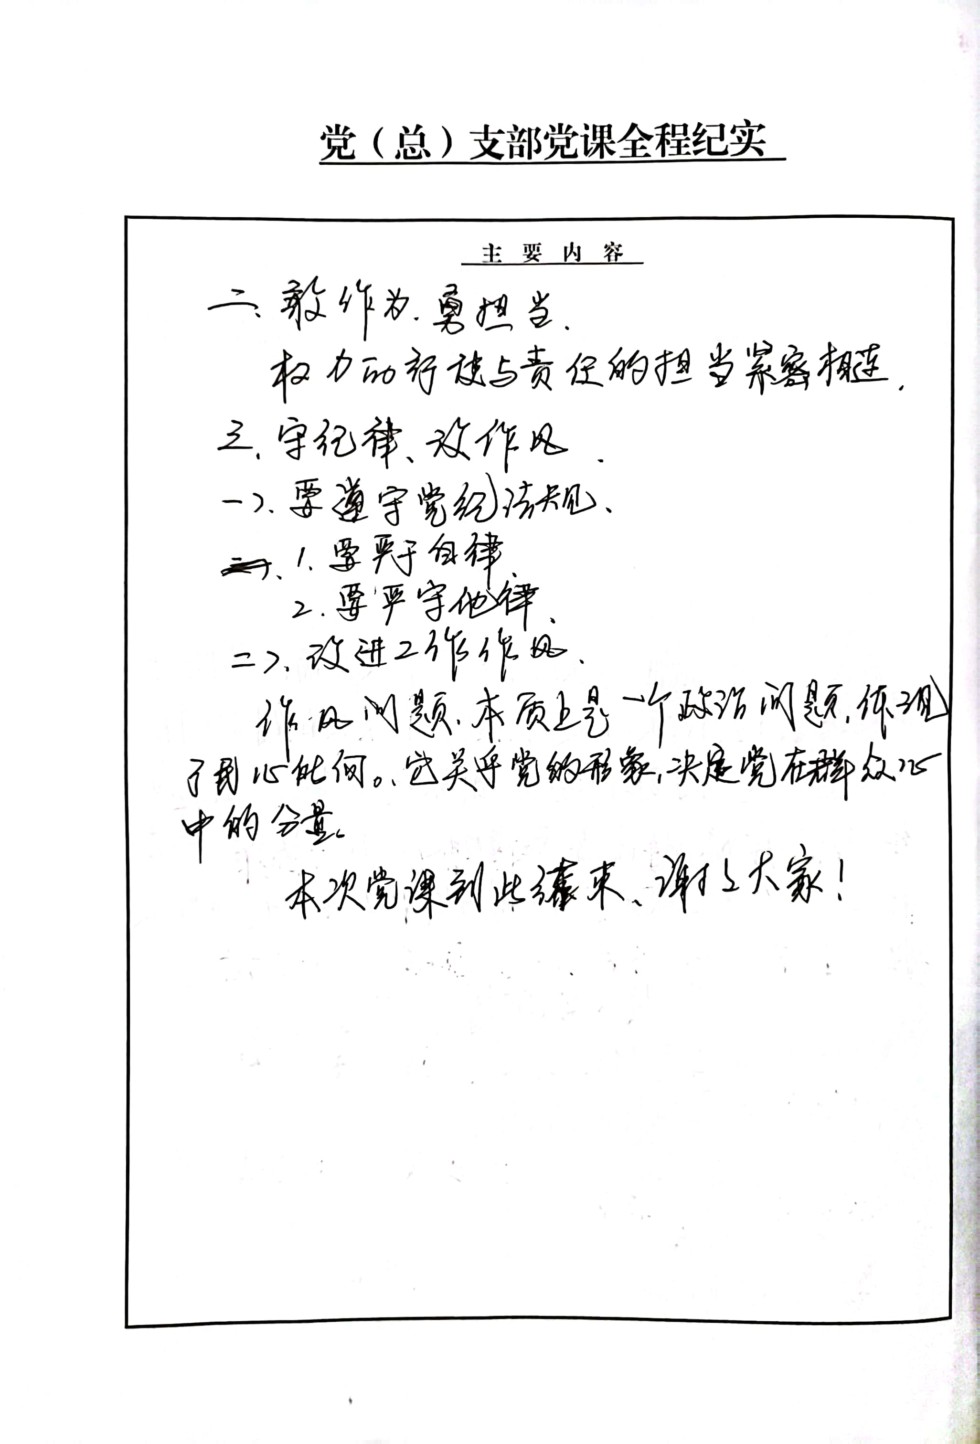 党（总）支部党课全程纪实
主要内容
二、敢作为、勇担当.
权力的行使与责任的担当紧密相连.
三、守纪律、改作风.
一)、要遵守党纪法规、
1. 要严于自律、
2. 要严守他律、
二)、改进工作作风.
作风问题、本质上是一个政治问题,体现
了民心所向。、它关乎党的形象,决定党在群众心
中的分量。
本次党课到此结束、谢谢大家!